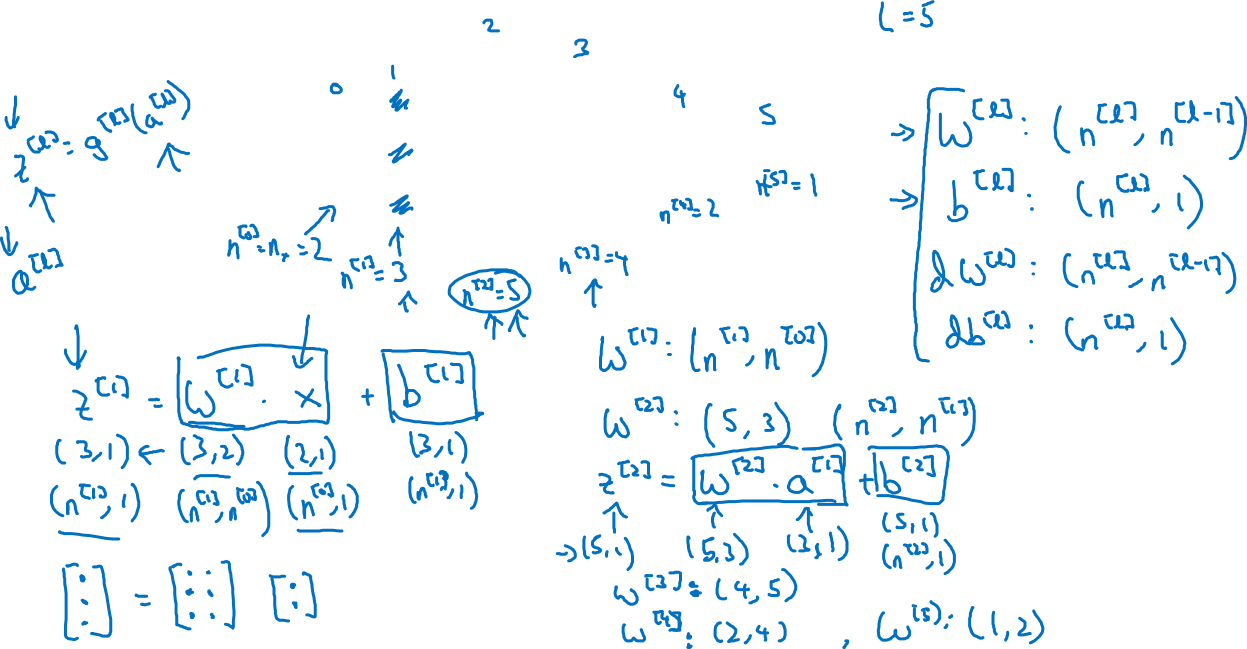 L = 5
2
3
0
1
4
5
z^[l] = g^[l](a^[l])
a^[l]
n^[0] = n_x = 2
n^[1] = 3
n^[2] = 5
n^[3] = 4
n^[4] = 2
n^[5] = 1
→ W^[l] : (n^[l], n^[l-1])
→ b^[l] : (n^[l], 1)
dW^[l] : (n^[l], n^[l-1])
db^[l] : (n^[l], 1)
z^[1] = W^[1] · x + b^[1]
(3,1) ← (3,2) (2,1) (3,1)
(n^[1],1) (n^[1],n^[0]) (n^[0],1) (n^[1],1)
[⋮] = [⋮ ⋮] [:]
W^[1] : (n^[1], n^[0])
W^[2] : (5,3) (n^[2], n^[1])
z^[2] = W^[2] · a^[1] + b^[2]
→ (5,1) (5,3) (3,1) (5,1)
(n^[2],1)
W^[3] : (4,5)
W^[4] : (2,4) , W^[5] : (1,2)